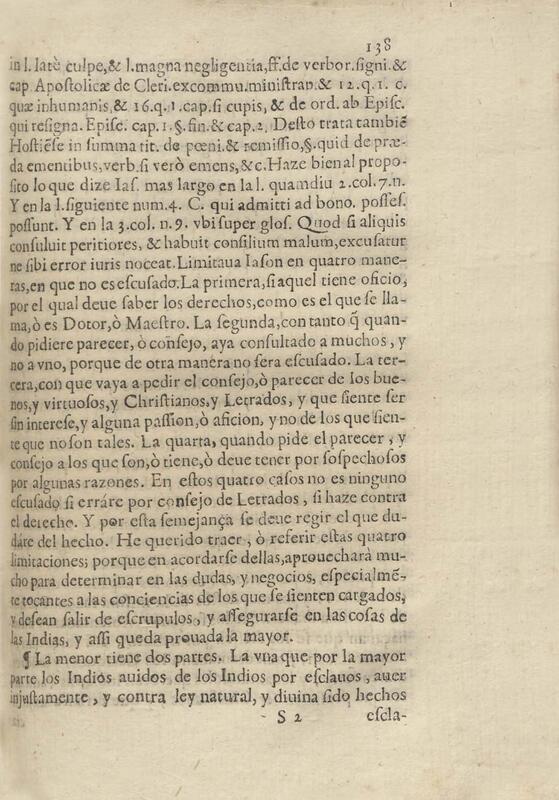 138
in l. latè culpe,& l. magna negligentia,ff. de verbor. signi. &
cap. Apostolicæ de Cleri. excommu. ministran. & 12. q. 1. c.
quæ inhumanis, & 16. q. 1. cap. si cupis, & de ord. ab Episc.
qui resigna. Episc. cap. 1. §. fin. & cap. 2. Desto trata tambiē
Hostiēse in summa tit. de pœni. & remissio, §. quid de præ-
da ementibus, verb. si verò emens, &c. Haze bien al propo-
sito lo que dize Ias. mas largo en la l. quamdiu 2. col. 7. n.
Y en la l. siguiente num. 4. C. qui admitti ad bono. posses.
possunt. Y en la 3. col. n. 9. vbi super glos. Quod si aliquis
consuluit peritiores, & habuit consilium malum, excusatur
ne sibi error iuris noceat. Limitaua Iason en quatro mane-
ras, en que no es escusado. La primera, si aquel tiene oficio,
por el qual deue saber los derechos, como es el que se lla-
ma, ò es Dotor, ò Maestro. La segunda, con tanto q̃ quan-
do pidiere parecer, ò consejo, aya consultado a muchos, y
no a vno, porque de otra manera no sera escusado. La ter-
cera, con que vaya a pedir el consejo, ò parecer de los bue-
nos, y virtuosos, y Christianos, y Letrados, y que siente ser
sin interese, y alguna passion, ò aficion, y no de los que sien-
te que no son tales. La quarta, quando pide el parecer, y
consejo a los que son, ò tiene, ò deue tener por sospechosos
por algunas razones. En estos quatro casos no es ninguno
escusado si erráre por consejo de Letrados, si haze contra
el derecho. Y por esta semejança se deue regir el que du-
dáre del hecho. He querido traer, ò referir estas quatro
limitaciones; porque en acordarse dellas, aprouechará mu-
cho para determinar en las dudas, y negocios, especialmē-
te tocantes a las conciencias de los que se sienten cargados,
y desean salir de escrupulos, y assegurarse en las cosas de
las Indias, y assi queda prouada la mayor.
¶ La menor tiene dos partes. La vna que por la mayor
parte los Indios auidos de los Indios por esclauos, auer
injustamente, y contra ley natural, y diuina sido hechos
S 2 escla-